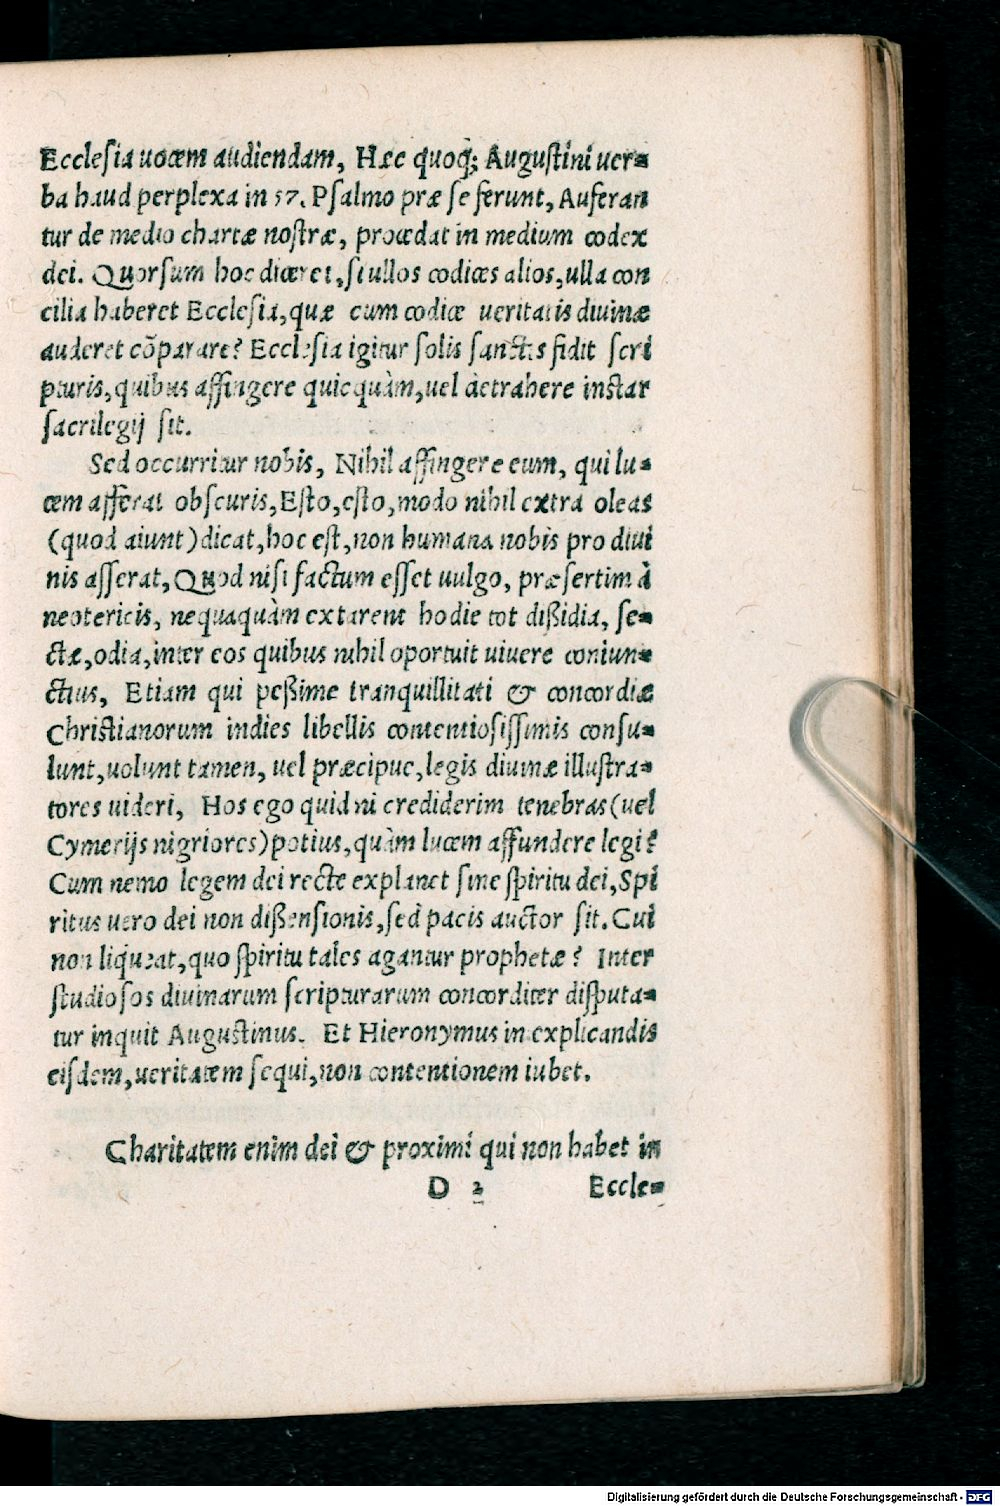 Ecclesia uocem audiendam, Hæc quoq; Augustini uer-
ba haud perplexa in 57. Psalmo præ se ferunt, Auferan
tur de medio chartæ nostræ, procedat in medium codex
dei. Quorsum hoc diceret, si ullos codices alios, ulla con
cilia haberet Ecclesia, quæ cum codice ueritatis diuinæ
auderet cõparare? Ecclesia igitur solis sanctis fidit scri
pturis, quibus affingere quicquàm, uel detrahere instar
sacrilegij sit.
Sed occurritur nobis, Nihil affingere eum, qui lu-
cem afferat obscuris, Esto, esto, modo nihil extra oleas
(quod aiunt) dicat, hoc est, non humana nobis pro diui
nis asserat, Quod nisi factum esset uulgo, præsertim à
neotericis, nequaquàm extarent hodie tot dißidia, se-
ctæ, odia, inter eos quibus nihil oportuit uiuere coniun-
ctius, Etiam qui peßime tranquillitati & concordiæ
Christianorum indies libellis contentiosissimis consu-
lunt, uolunt tamen, uel præcipue, legis diuinæ illustra-
tores uideri, Hos ego quid ni crediderim tenebras (uel
Cymerijs nigriores) potius, quàm lucem affundere legi?
Cum nemo legem dei recte explanet sine spiritu dei, Spi
ritus uero dei non dißensionis, sed pacis auctor sit. Cui
non liqueat, quo spiritu tales agantur prophetæ? Inter
studiosos diuinarum scripturarum concorditer disputa-
tur inquit Augustinus. Et Hieronymus in explicandis
eisdem, ueritatem sequi, non contentionem iubet.
Charitatem enim dei & proximi qui non habet in
D 2 Eccle-
Digitalisierung gefördert durch die Deutsche Forschungsgemeinschaft - DFG